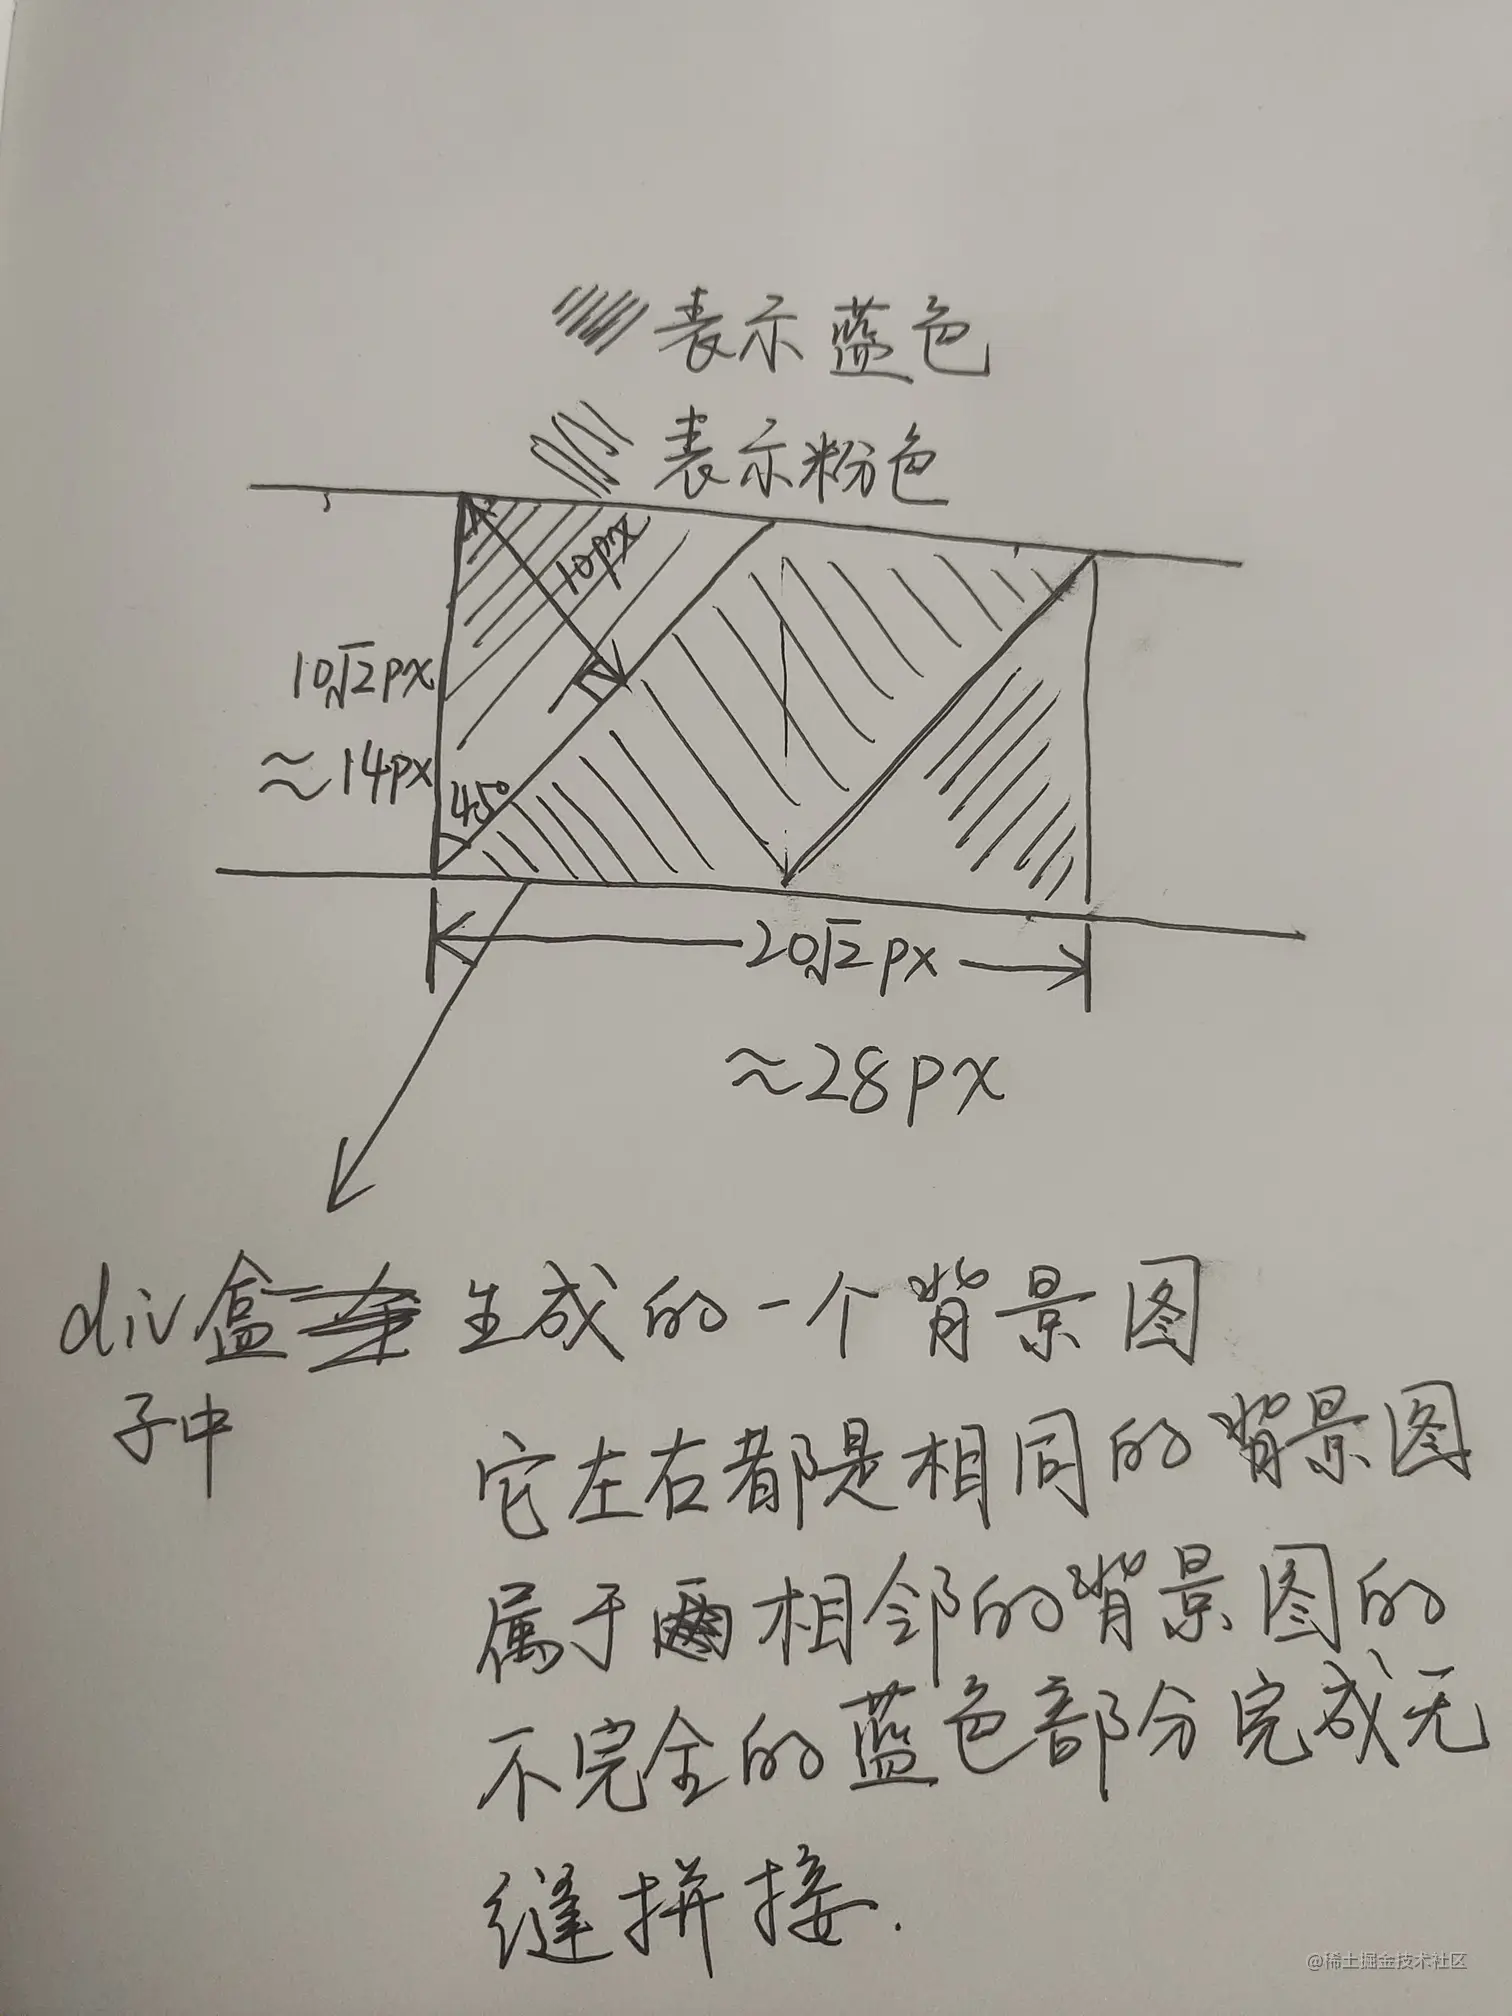 表示蓝色
表示粉色
10px
10√2px
≈14px
45°
20√2px
≈28px
div盒生成的一个背景图
子中
它左右都是相同的背景图
属于相邻的背景图的
不完全的蓝色部分完成无
缝拼接.
@稀土掘金技术社区